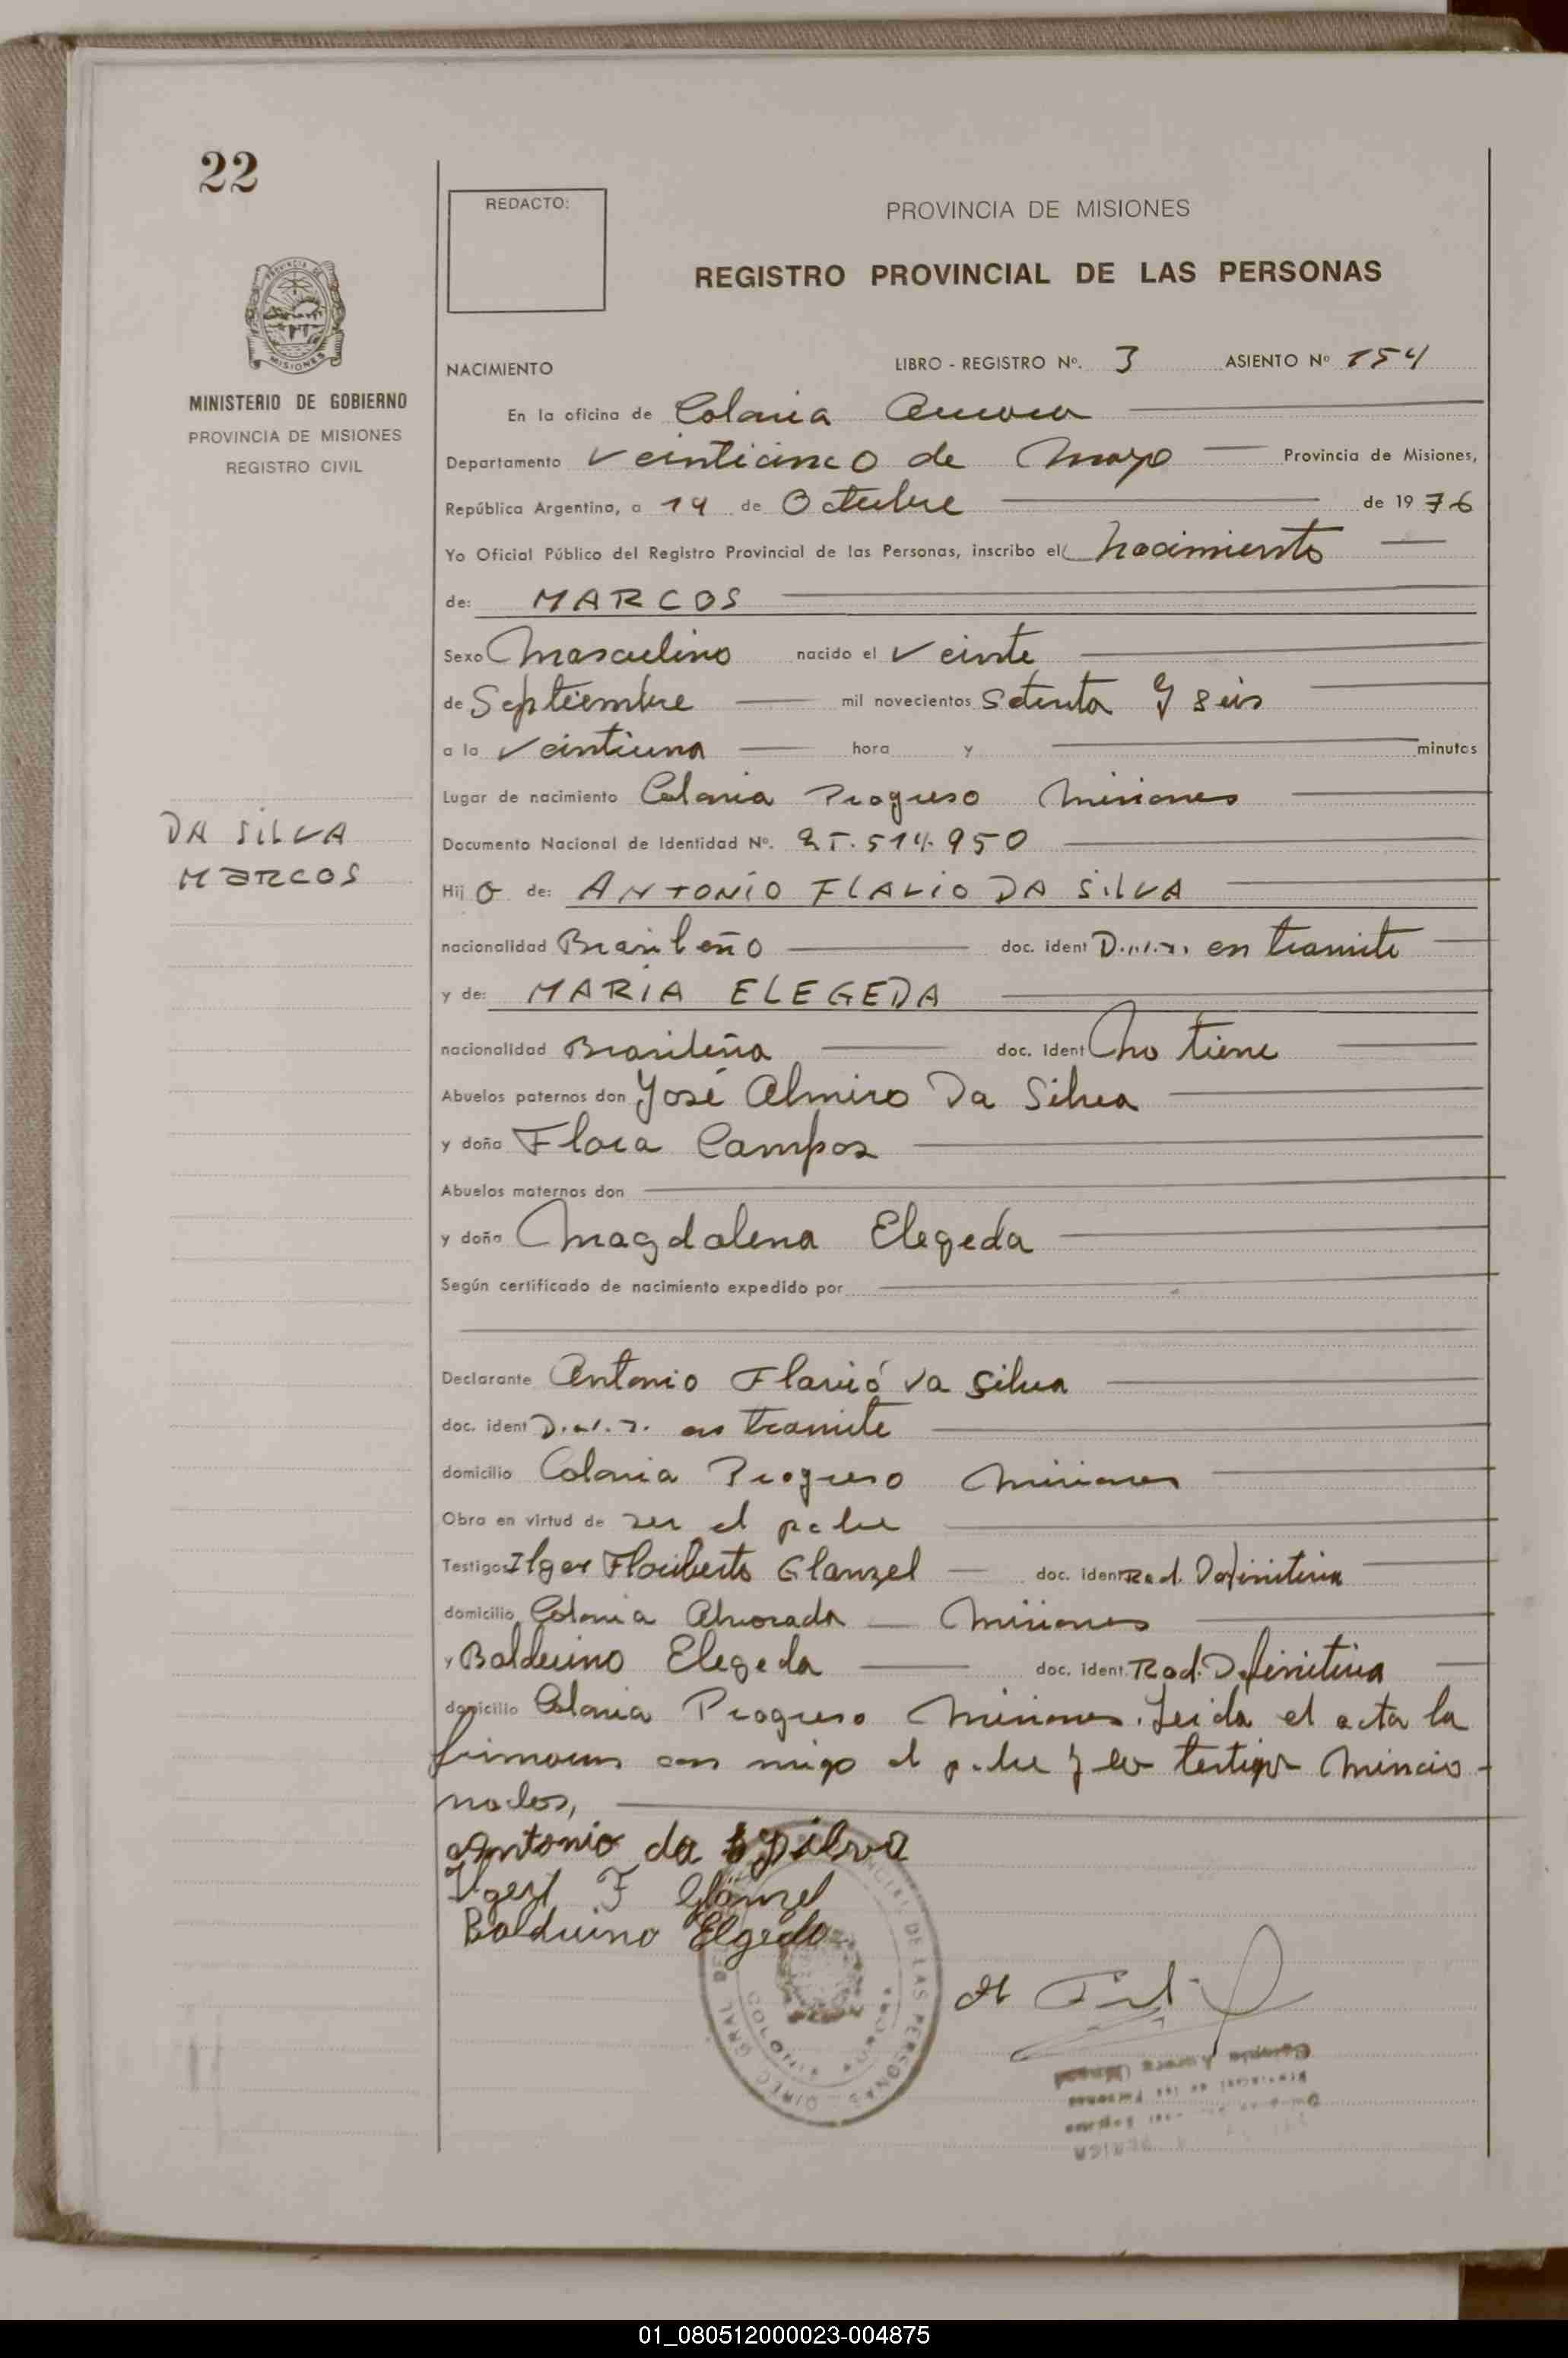 22
REDACTO:
PROVINCIA DE MISIONES
REGISTRO PROVINCIAL DE LAS PERSONAS
MINISTERIO DE GOBIERNO
PROVINCIA DE MISIONES
REGISTRO CIVIL
NACIMIENTO LIBRO - REGISTRO Nº. 3 ASIENTO Nº 154
En la oficina de Colonia Aurora
Departamento Veinticinco de Mayo Provincia de Misiones,
República Argentina, a 14 de Octubre de 1976
Yo Oficial Público del Registro Provincial de las Personas, inscribo el Nacimiento
de: MARCOS
Sexo Masculino nacido el Veinte
de Septiembre mil novecientos Setenta y seis
a la Veintiuna hora y minutos
Lugar de nacimiento Colonia Progreso Misiones
DA SILVA
MARCOS
Documento Nacional de Identidad Nº. 25.514.950
Hij o de: ANTONIO FLAVIO DA SILVA
nacionalidad Brasileño doc. ident D.N.I. en tramite
y de: MARIA ELEGEDA
nacionalidad Brasileña doc. ident No tiene
Abuelos paternos don José Almiro Da Silva
y doña Flora Campos
Abuelos maternos don
y doña Magdalena Elegeda
Según certificado de nacimiento expedido por
Declarante Antonio Flavió Da Silva
doc. ident D.N.I. en tramite
domicilio Colonia Progreso Misiones
Obra en virtud de ser el padre
Testigos Ilger Floriberto Glanzel doc. ident Rad. Definitiva
domicilio Colonia Alvorada Misiones
y Balduino Elegeda doc. ident. Rad. Definitiva
domicilio Colonia Progreso Misiones. Leida el acta la
firman con migo el padre y los testigos mencio-
nados,
Antonio da Silva
F Glänzel
Balduino Elgeda
DE LAS PERSONAS
01_080512000023-004875